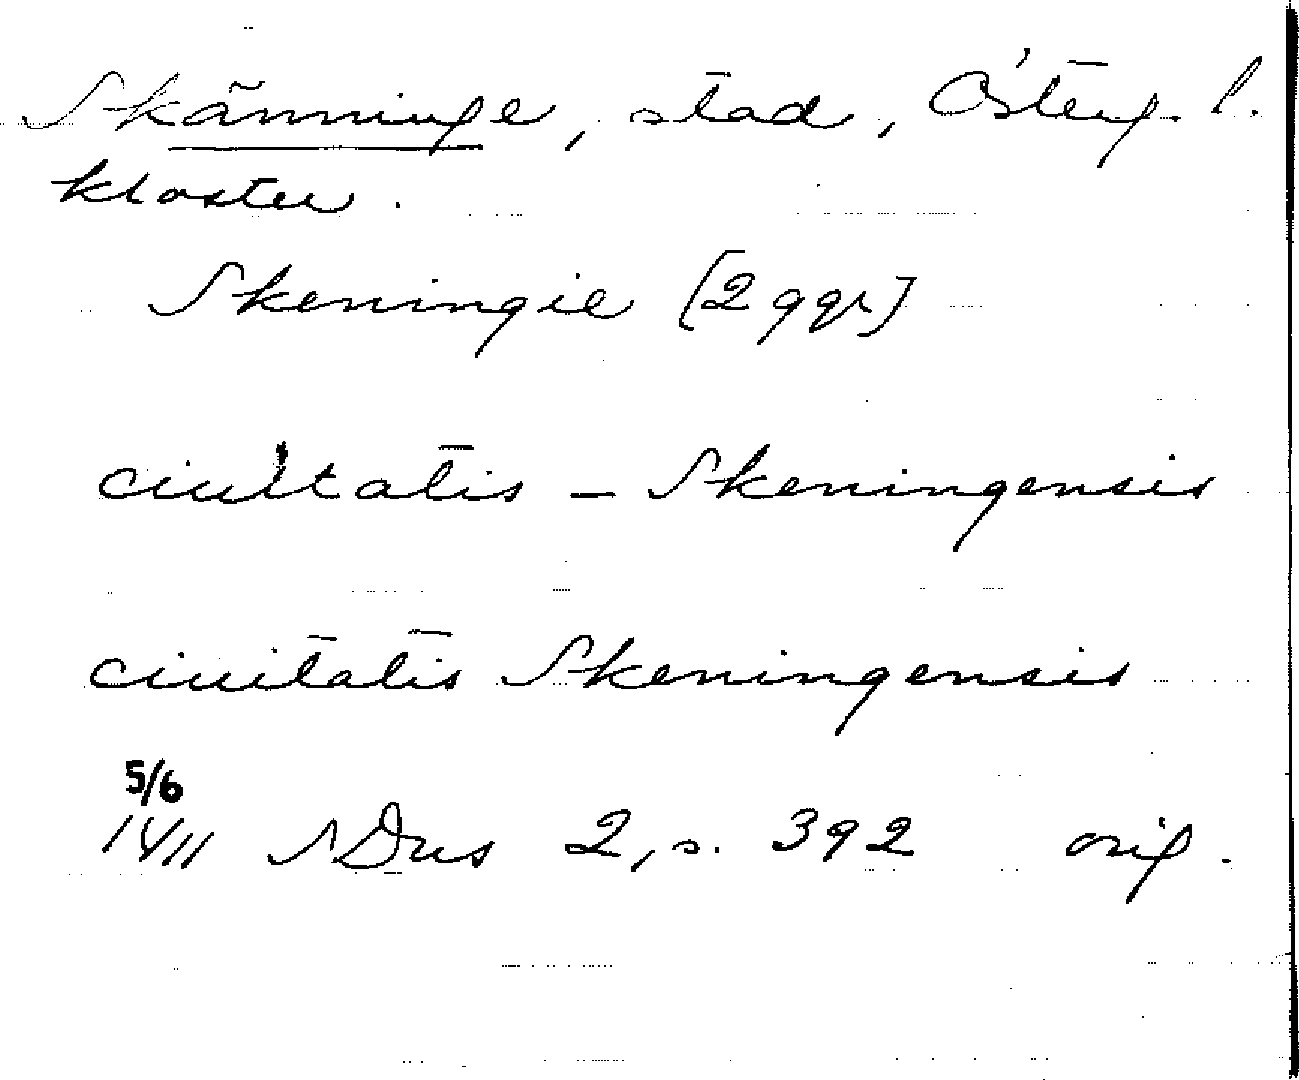 Skänninge, stad, Österg. l.
kloster.
Skeningie [2 ggr]
ciuitatis – Skeningensis
ciuitatis Skeningensis
5/6
1411 SDns 2, s. 392 orig.